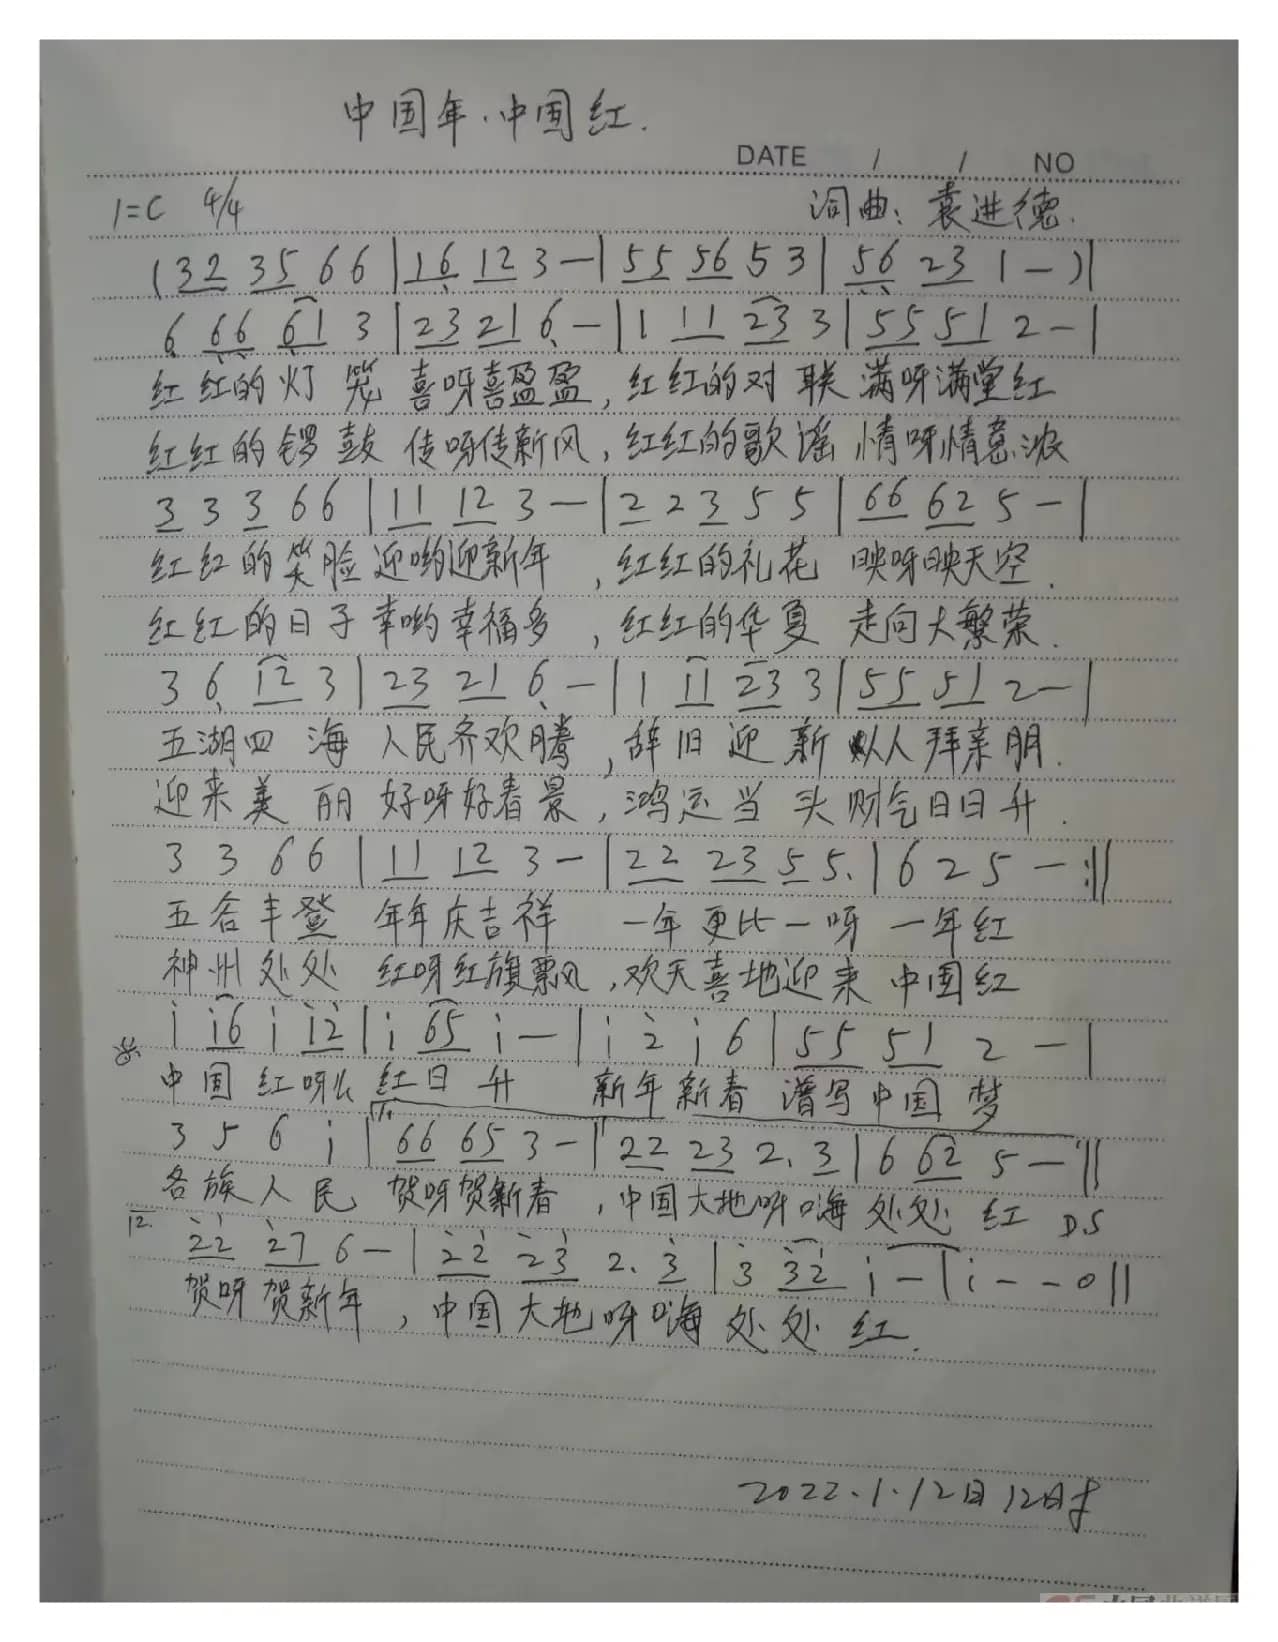 中国年·中国红.
DATE / / NO
1=C 4/4
词曲: 袁进德.
(32 35 66|16 12 3-|55 56 53|56 23 1-)|
6 66 61 3|23 21 6-|1 11 23 3|55 51 2-|
红红的灯笼 喜呀喜盈盈,红红的对联 满呀满堂红
红红的锣鼓 传呀传新风,红红的歌谣 情呀情意浓
3 3 3 66|11 12 3-|2 2 3 5 5|66 62 5-|
红红的笑脸 迎哟迎新年,红红的礼花 映呀映天空.
红红的日子 幸哟幸福多,红红的华夏 走向大繁荣.
3 6 12 3|23 21 6-|1 11 23 3|55 51 2-|
五湖四海 人民齐欢腾,辞旧迎新 以人拜亲朋.
迎来美丽 好呀好春景,鸿运当头 财气日日升.
3 3 6 6|11 12 3-|22 23 5 5.|6 2 5-:||
五谷丰登 年年庆吉祥 一年更比一呀 一年红
神州处处 红呀红旗飘风,欢天喜地迎来 中国红
i i6 i i2|i 65 i-|i 2 i 6|55 51 2-|
中国红呀么 红日升 新年新春 谱写中国梦
3 5 6 i|66 65 3-|22 23 2. 3|6 62 5-||
各族人民 贺呀贺新春,中国大地呀嗨 处处红 D.S
12. 22 27 6-|22 23 2. 3|3 32 i-|i--0||
贺呀贺新年,中国大地呀嗨 处处红.
2022.1.12日12时